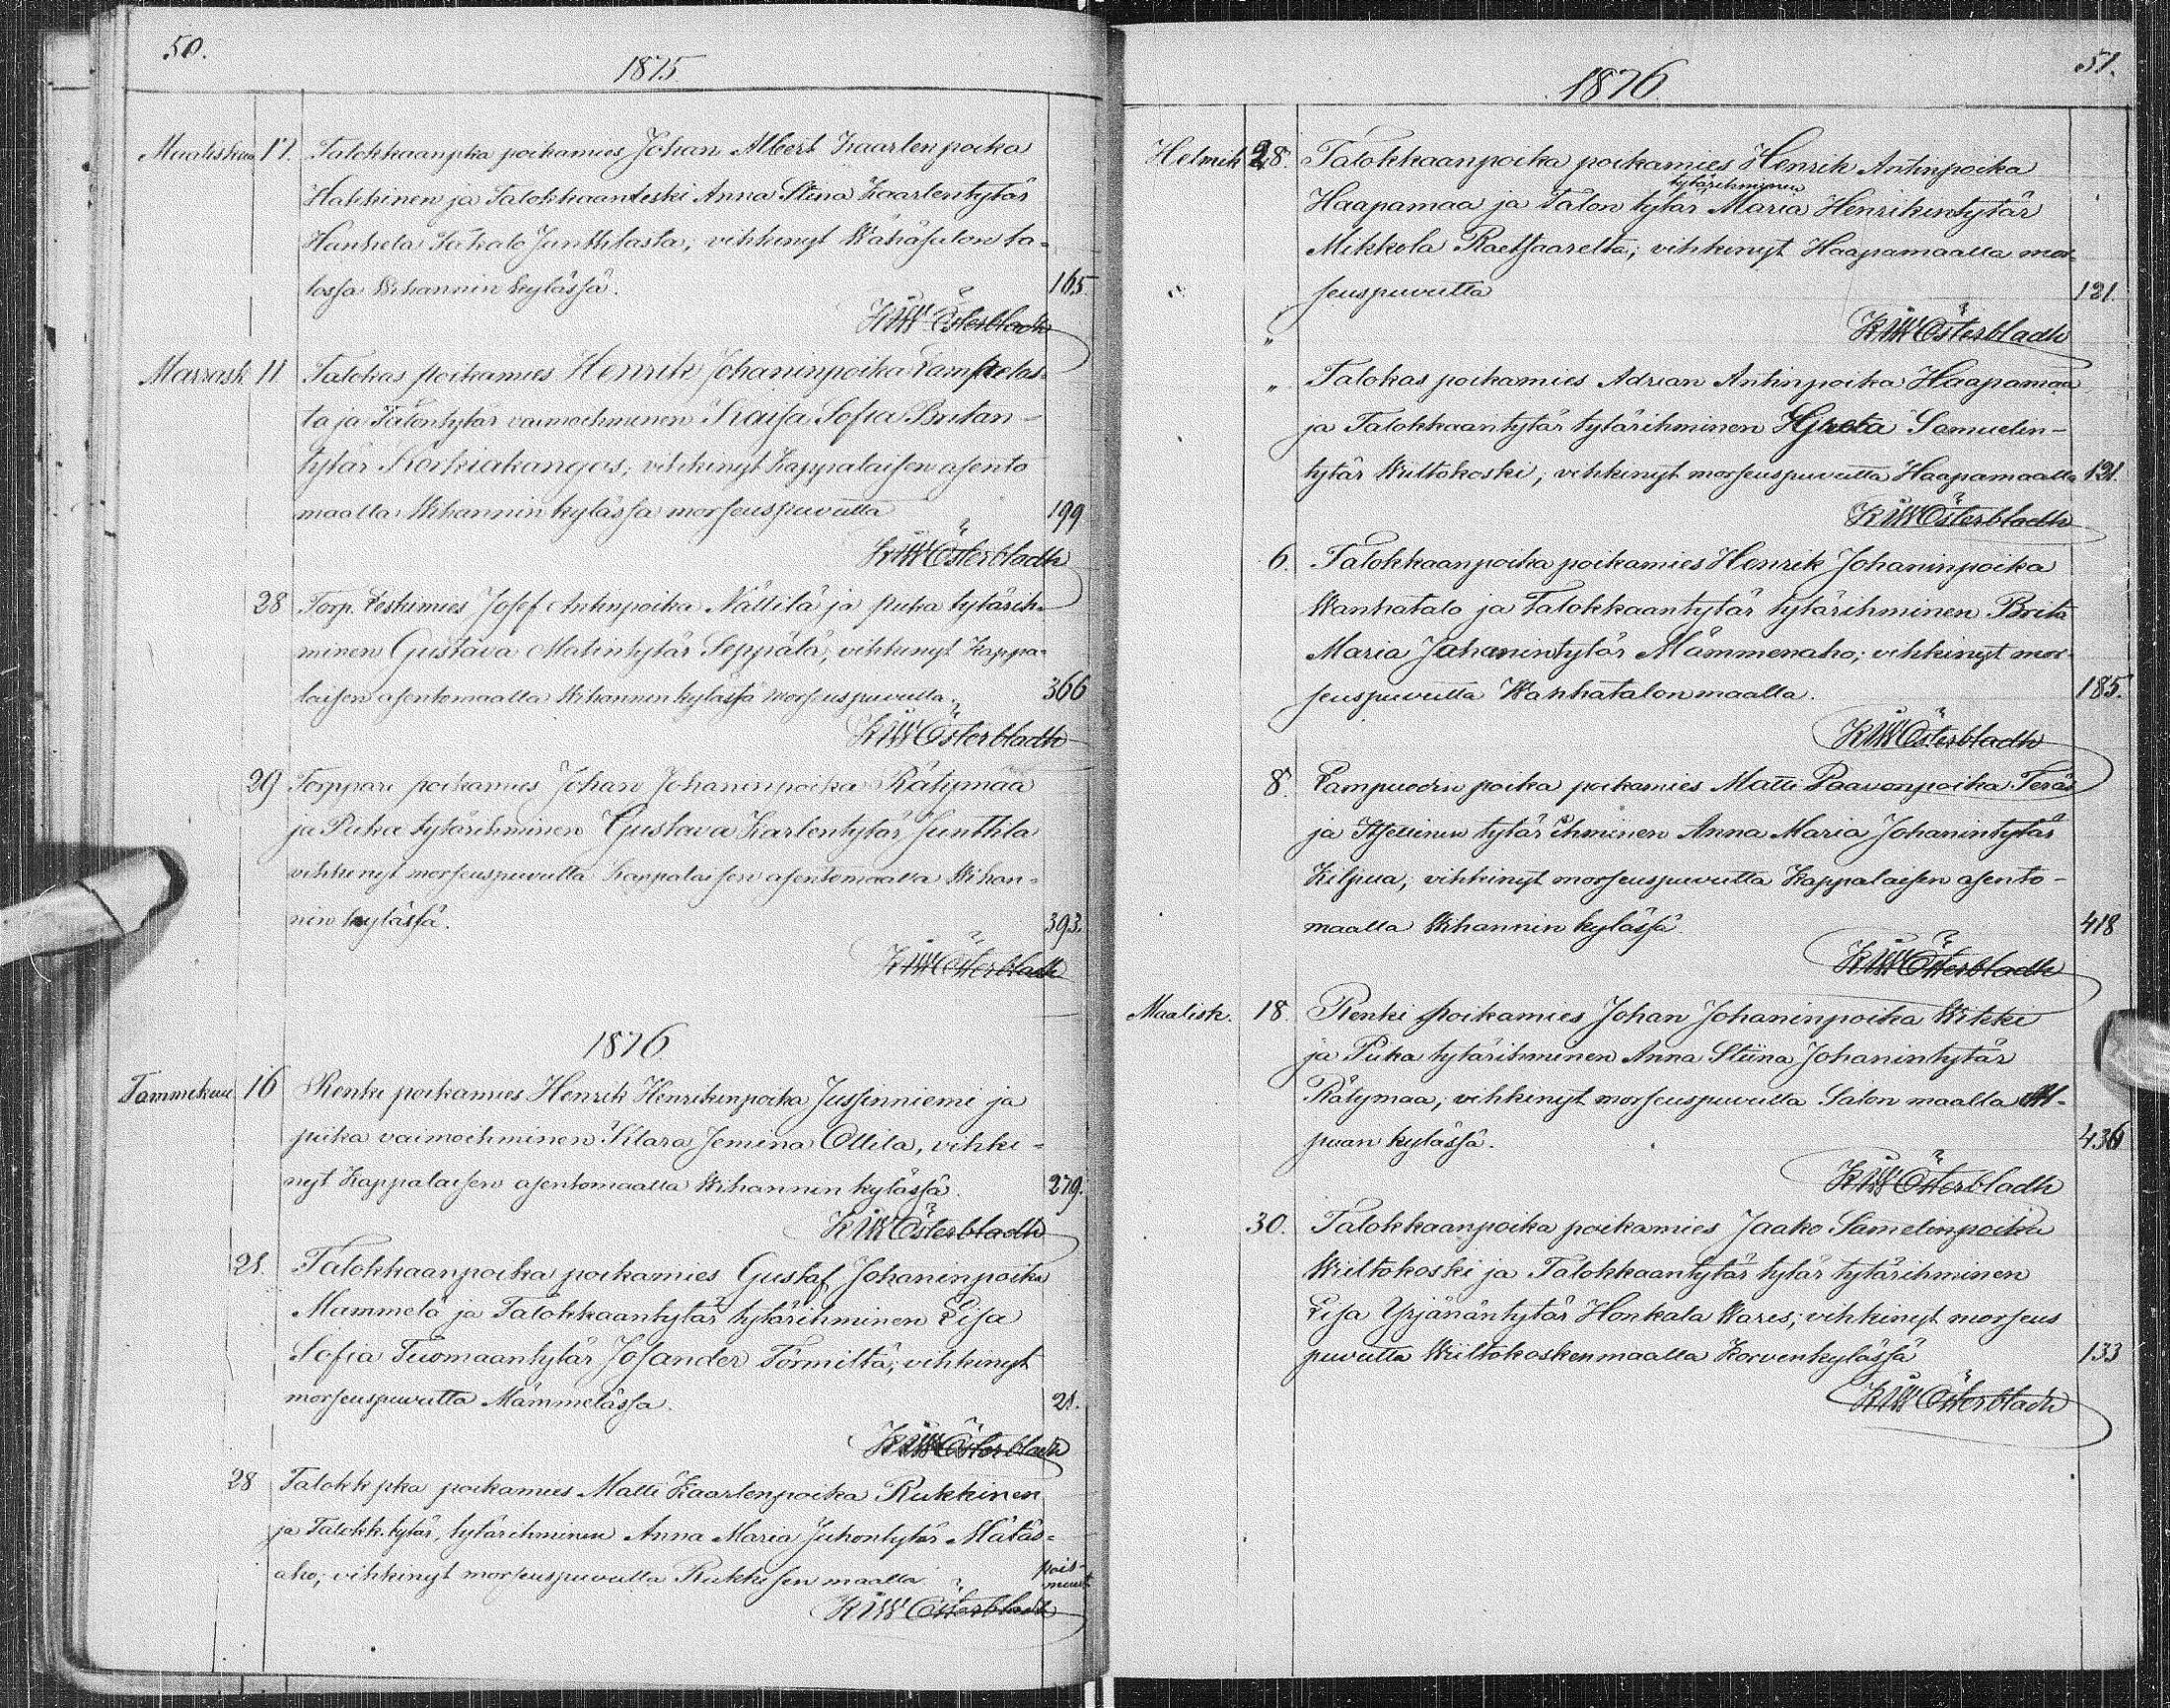 50.
1875
Maaliskuu 17. Talokkaanpka poikamies Johan Albert Kaarlenpoika
Hakkinen ja Talokkaanleski Anna Stina Kaarlentytär
Hankela Junttilasta, vihkinyt Wähäsalon ta-
lossa Wihannin kylässä. 165.
KWÖsterbladh
Marrask 11 Talokas poikamies Henrik Johaninpoika Lampelos-
ta ja Talontytär vaimoihminen Kaisa Sofia
tytär Korkiakangas, vihkinyt Kappalaisen asento
maalla Wihannin kylässä morseuspuvutta 199
KWÖsterbladh
28 Torp. Leskimies Josef Antinpoika Nättilä ja piika tytärih-
minen Gustava Matintytär Seppälä, vihkinyt Kappa-
laisen asentomaalla Wihannin kylässä morseuspuvutta. 366
KWÖsterbladh
29 Torppari poikamies Johan Johaninpoika Rätymaa
ja Piika tytärihminen Gustava Karlentytär Junttila
vihkinyt morseuspuvutta Kappalaisen asentomaalla Wihan-
nin kylässä. 393.
KWÖsterbladh
1876
Tammikuu 16 Renki poikamies Henrik Henrikinpoika Jussinniemi ja
piika vaimoihminen Klara Jemina Ollila, vihki-
nyt Kappalaisen asentomaalla Wihannin kylässä. 279.
KWÖsterbladh
21. Talokkaanpoika poikamies Gustaf Johaninpoika
Mammelä ja Talokkaantytär tytärihminen Lisa
Sofia Tuomaantytär Josander Törmiltä; vihkinyt
morseuspuvutta Mämmelässa. 21.
KWÖsterbladh
28 Talokk pka poikamies Matti Kaarlenpoika Rukkinen
ja Talokk.tytär, tytärihminen Anna Maria Juhontytär Mätäs-
aho; vihkinyt morseuspuvutta Rukkisen maalla pois-
muut
KWÖsterbladh
51.
1876.
Helmik 28. Talokkaanpoika poikamies Henrik Antinpoika
tytärihminen
Haapamaa ja Talon tytär Maria Henrikintytär
Mikkola Raetsaarelta; vihkinyt Haapamaalla mor-
seuspuvutta 121.
KWÖsterbladh
" Talokas poikamies Adrian Antinpoika Haapamaa
ja Talokkaantytär tytärihminen Samuelin-
tytär Wiiltokoski; vihkinyt morseuspuvutta Haapamaalla 121.
KWÖsterbladh
6. Talokkaanpoika poikamies Henrik Johaninpoika
Wanhatalo ja Talokkaantytär tytärihminen Brita
Maria Johanintytär Mämmenaho; vihkinyt mor-
seuspuvutta Wanhatalon maalla. 185.
KWÖsterbladh
8. Lampuodin poika poikamies Matti Paavonpoika Teräs
ja Itsellinen tytär ihminen Anna Maria Johanintytär
Kilpua, vihkinyt morseuspuvutta Kappalaisen asento-
maalla Wihannin kylässä. 418
KWÖsterbladh
Maalisk. 18. Renki poikamies Johan Johaninpoika Wikki
ja Piika tytärihminen Anna Stiina Johanintytär
Rätymaa, vihkinyt morseuspuvutta Salon maalla Al-
puan kylässä. 436
KWÖsterbladh
30. Talokkaanpoika poikamies Jaako Samelinpoika
Wiiltokoski ja Talokkaantytär tytär tytärihminen
Lisa Yrjänäntytär Honkala Wares; vihkinyt morseus
puvutta Wiiltokoskenmaalla Korvenkylässä 133
KWÖsterbladh